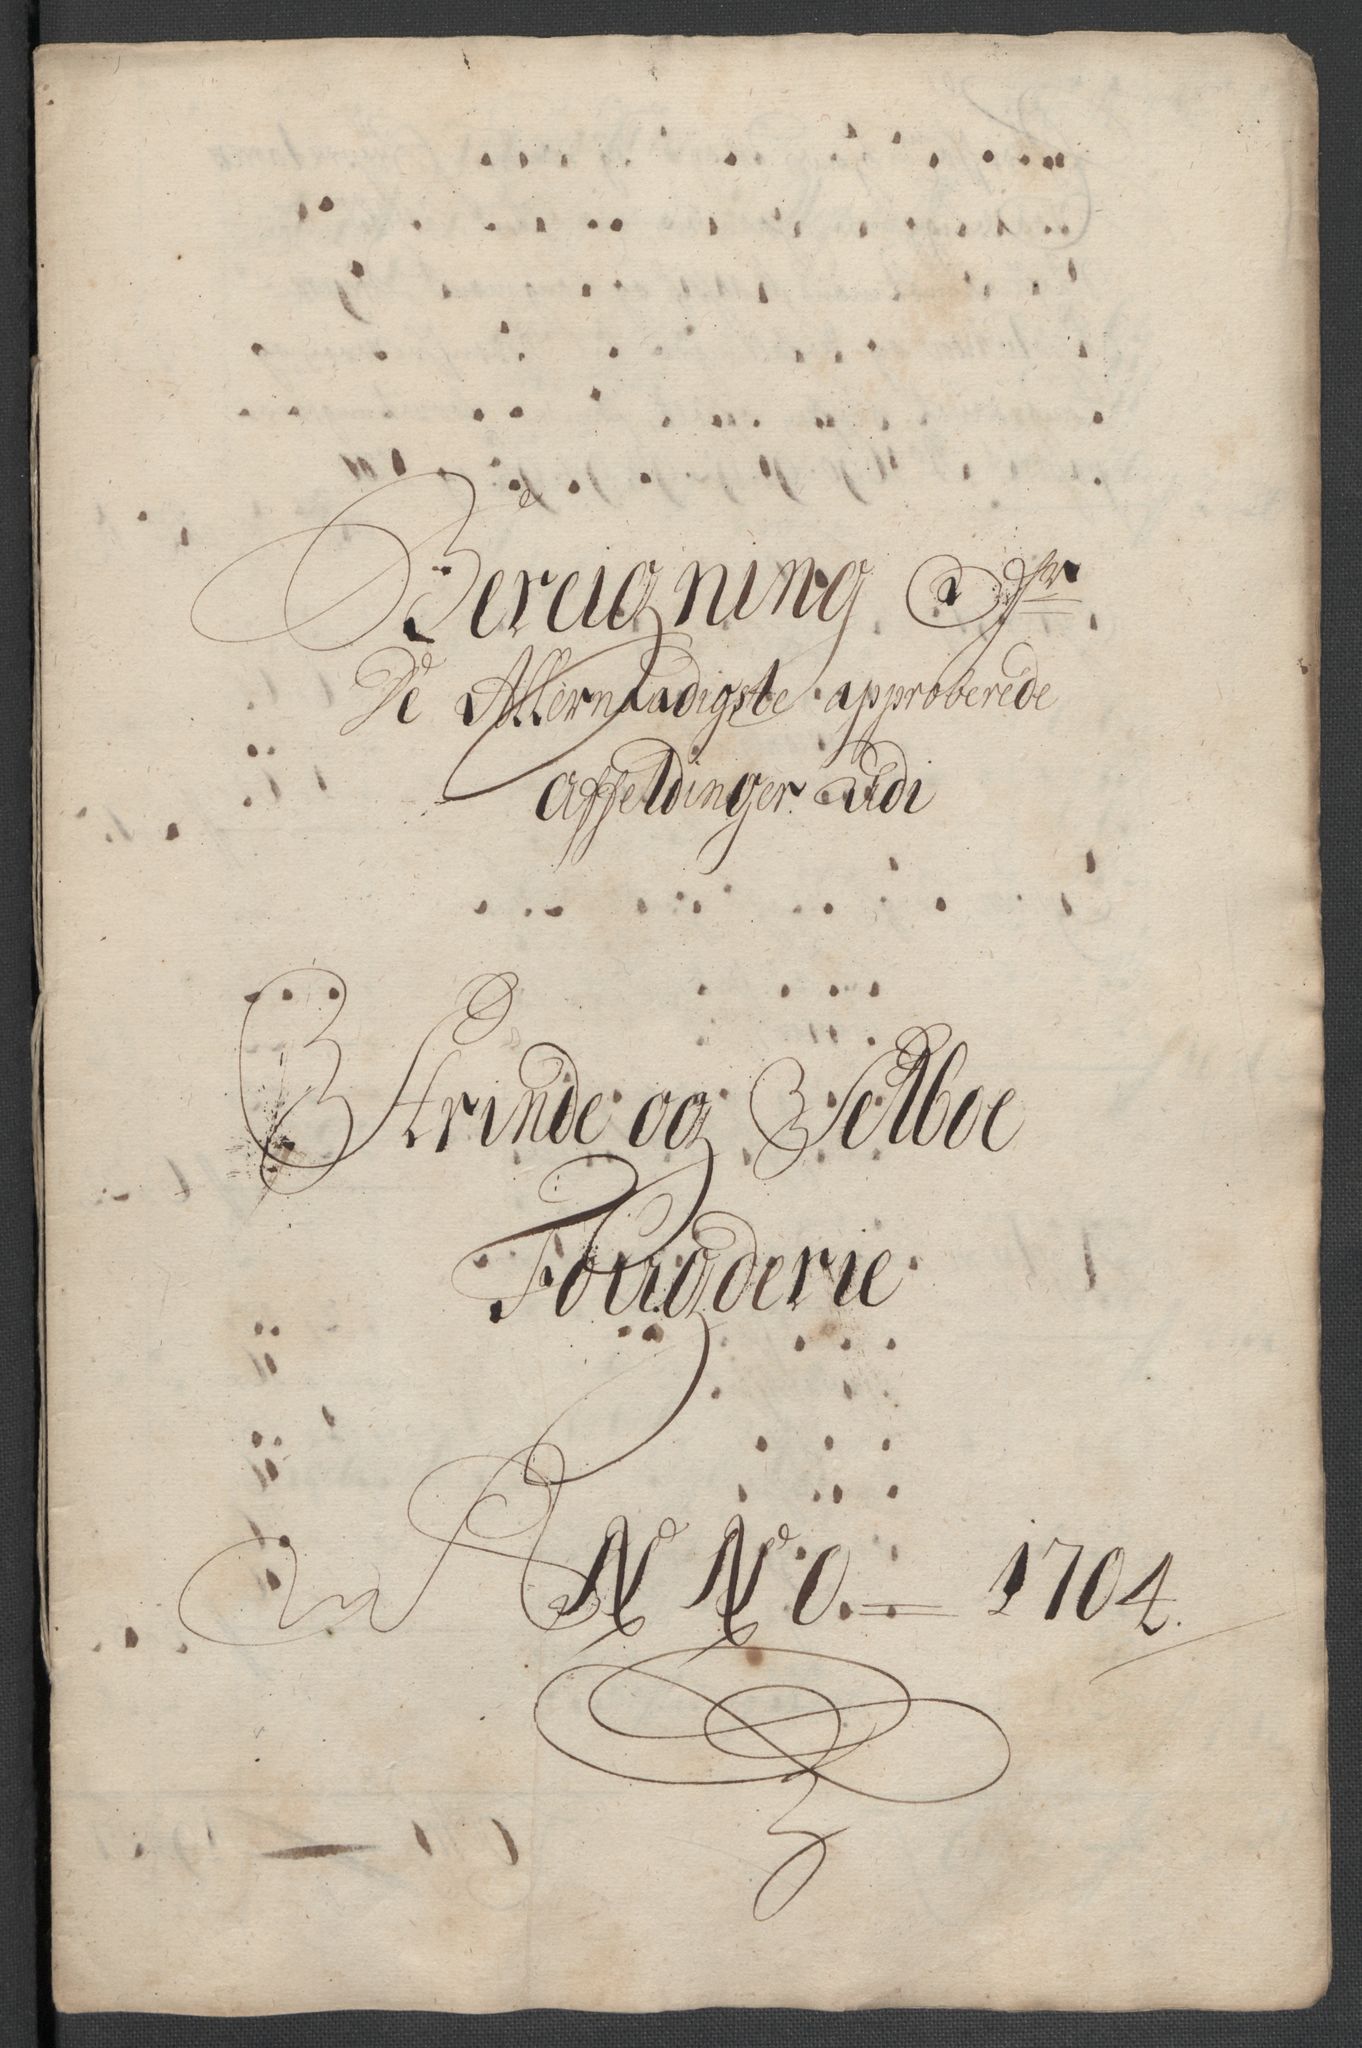 Bereigning
De Allernaadigste approberede
affeldinger udi
Strinde og Selboe
Fougderie
ANNO 1704.